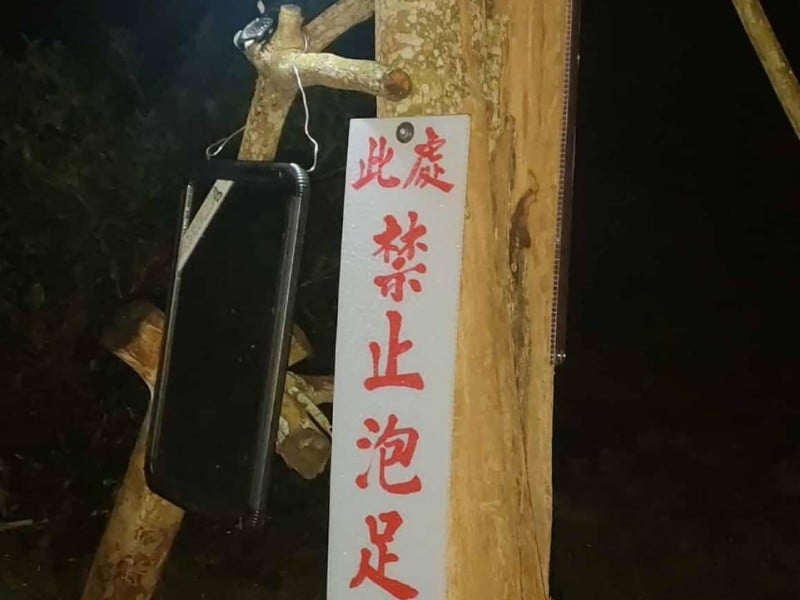 此處
禁止泡足